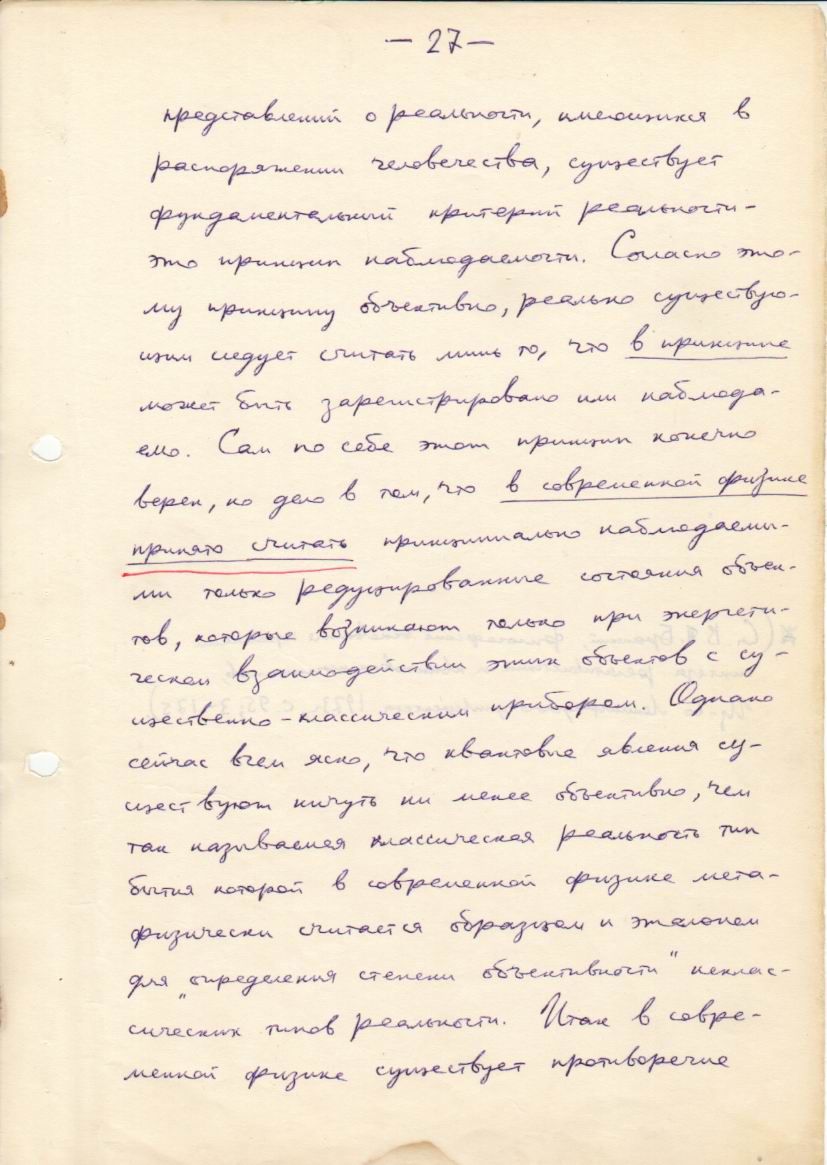 — 27 —
представлений о реальности, имеющихся в
распоряжении человечества, существует
фундаментальный критерий реальности –
это принцип наблюдаемости. Согласно это-
му принципу объективно, реально существую-
щим следует считать лишь то, что в принципе
может быть зарегистрировано или наблюда-
емо. Сам по себе этот принцип конечно
верен, но дело в том, что в современной физике
принято считать принципиально наблюдаемы-
ми только редуцированные состояния объек-
тов, которые возникают только при энергети-
ческом взаимодействии этих объектов с су-
щественно-классическим прибором. Однако
сейчас всем ясно, что квантовые явления су-
ществуют ничуть ни менее объективно, чем
так называемая классическая реальность тип
бытия которой в современной физике мета-
физически считается образцом и эталоном
для „определения степени объективности" неклас-
сических типов реальности. Итак в совре-
менной физике существует противоречие